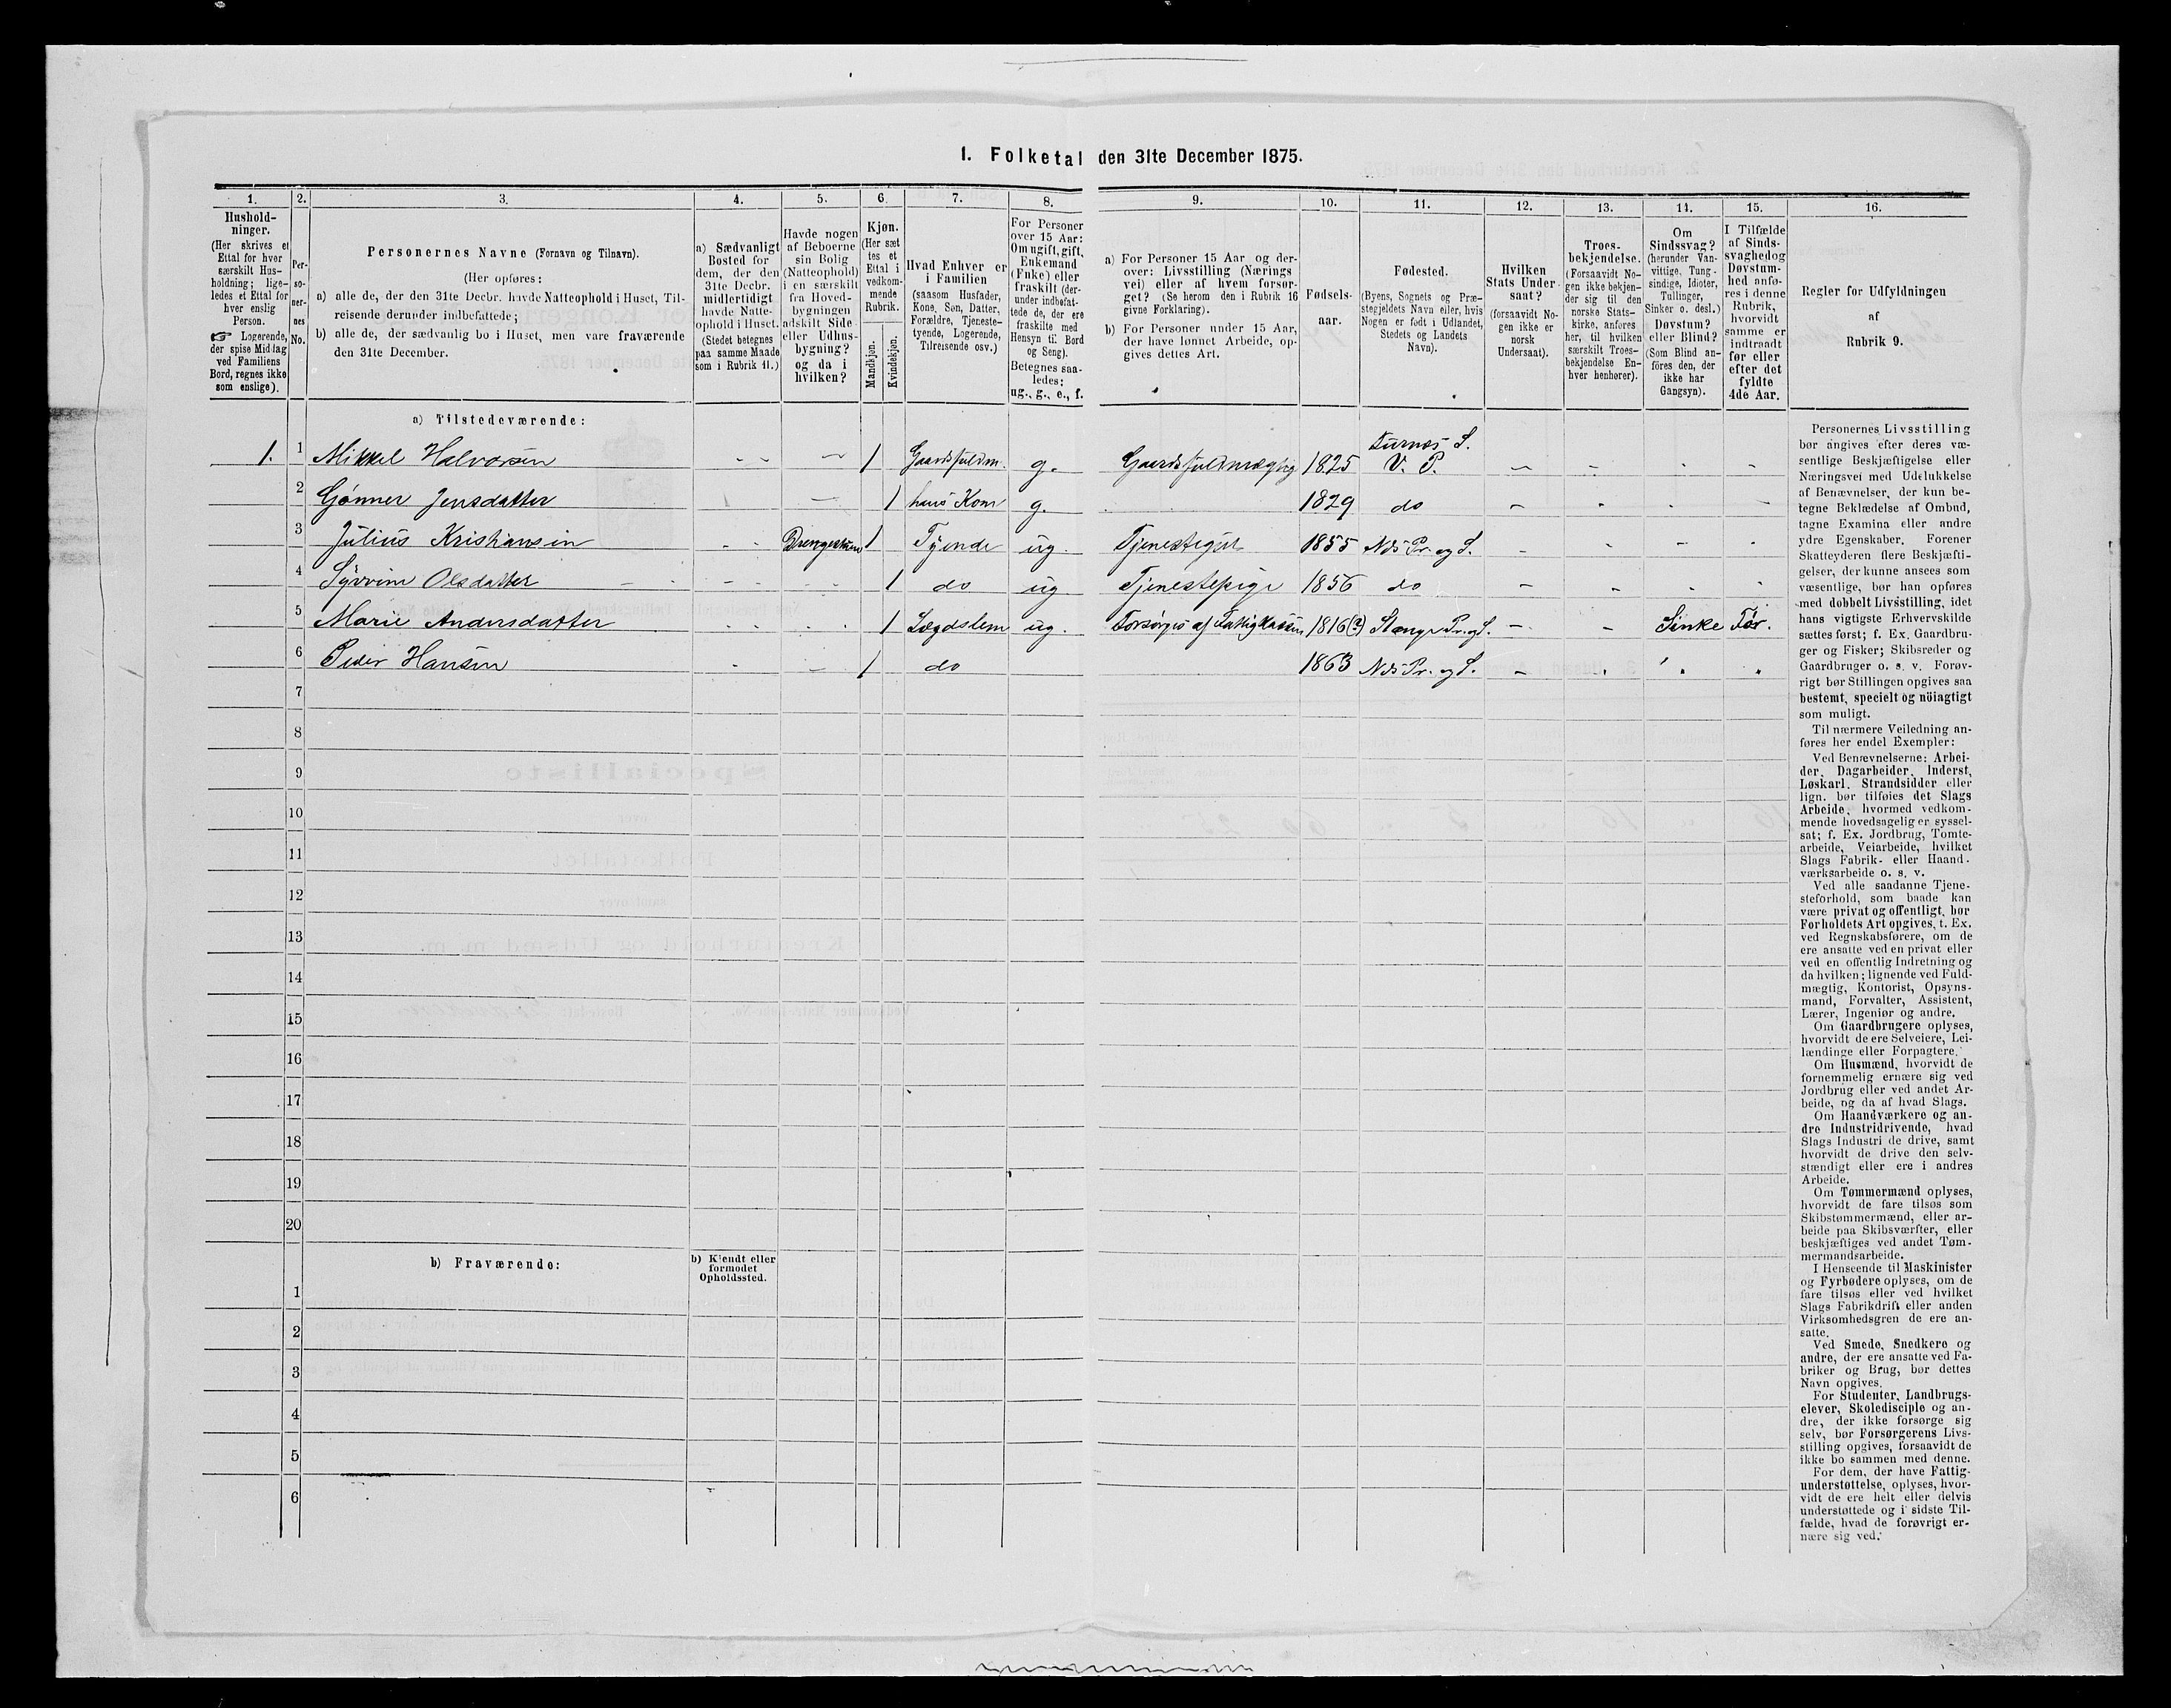 1. Folketal den 31te December 1875.
1. 2. 3. 4. 5. 6. 7. 8. 9. 10. 11. 12. 13. 14. 15. 16.
Hushold-
ninger.
(Her skrives et
Ettal for hver
særskilt Hus-
holdning; lige-
ledes et Ettal for
hver enslig
Person.
☞ Logerende,
der spise Middag
ved Familiens
Bord, regnes ikke
som enslige).
Per-
so-
ner-
nes
No.
Personernes Navne (Fornavn og Tilnavn).
(Her opføres:
a) alle de, der den 31te Decbr. havde Natteophold i Huset, Til-
reisende derunder indbefattede;
b) alle de, der sædvanlig bo i Huset, men vare fraværende
den 31te December.
a) Sædvanligt
Bosted for
dem, der den
31te Decbr.
midlertidigt
havde Natte-
ophold i Huset.
(Stedet betegnes
paa samme Maade
som i Rubrik 11.)
Havde nogen
af Beboerne
sin Bolig
(Natteophold)
i en særskilt
fra Hoved-
bygningen
adskilt Side-
eller Udhus-
bygning?
og da i
hvilken?
Kjøn.
(Her sæt
tes et
Ettal i
vedkom-
mende
Rubrik.
Mandkjøn.
Kvindekjøn.
Hvad Enhver er
i Familien
(saasom Husfader,
Kone, Søn, Datter,
Forældre, Tjeneste-
tyende, Logerende,
Tilreisende osv.)
For Personer
over 15 Aar:
Om ugift, gift,
Enkemand
(Enke) eller
fraskilt (der-
under indbefat-
tede de, der ere
fraskilte med
Hensyn til Bord
og Seng).
Betegnes saa-
ledes:
ug., g., e., f.
a) For Personer 15 Aar og der-
over: Livsstilling (Nærings
vei) eller af hvem forsør-
get? (Se herom den i Rubrik 16
givne Forklaring).
b) For Personer under 15 Aar,
der have lønnet Arbeide, op-
gives dettes Art.
Fødsels-
aar.
Fødested.
(Byens, Sognets og Præ-
stegjeldets Navn eller, hvis
Nogen er født i Udlandet,
Stedets og Landets
Navn).
Hvilken
Stats Under
saat?
(forsaavidt No-
gen ikke er
norsk
Undersaat).
Troes-
bekjendelse.
(Forsaavidt No-
gen ikke bekjen-
der sig til den
norske Stats-
kirke, anføres
her, til hvilken
særskilt Troes-
bekjendelse En-
hver henhører).
Om
Sindssvag?
(herunder Van-
vittige, Tung-
sindige, Idioter,
Tullinger,
Sinker o. desl.)
Døvstum?
eller Blind?
(Som Blind an-
føres den, der
ikke har
Gangsyn).
I Tilfælde
af Sinds-
svaghed og
Døvstum-
hed anfø-
res i denne
Rubrik,
hvorvidt
samme er
indtraadt
før eller
efter det
fyldte
4de Aar.
Regler for Udfyldningen
af
Rubrik 9.
a) Tilstedeværende:
1. 1 Mikkel Halvorsen - - - 1 Gaardsfuldm. g. Gaardsfuldmægtig 1825 Furnes S. V. P. - - - -
2 Gønner Jensdatter - 1 hans Kone g. 1829 do - - - -
3 Julius Kristiansen - - Drengestuen 1 Tyende ug. Tjenestegut 1855 Nds Pr. og S. - - - -
4 Syvrine Olsdatter - - - 1 do ug Tjenestepige 1856 do - - - -
5 Marie Andersdatter - - - 1 Lægdslem ug. Forsørges af Fattigkassen 1816(?) Stange Pr. og S. - - Sinke Før.
6 Peder Hansen - - 1 do 1863 Nds Pr. og S. - - - -
7
8
9
10
11
12
13
14
15
16
17
18
19
20
b) Fraværende:
b) Kjendt eller
formodet
Opholdssted.
1
2
3
4
5
6
Personernes Livsstilling
bør angives efter deres væ-
sentlige Beskjæftigelse eller
Næringsvei med Udelukkelse
af Benævnelser, der kun be-
tegne Beklædelse af Ombud,
tagne Examina eller andre
ydre Egenskaber. Forener
Skatteyderen flere Beskjæfti-
gelser, der kunne ansees som
væsentlige, bør han opføres
med dobbelt Livsstilling, idet
hans vigtigste Erhvervskilde
sættes først; f. Ex. Gaardbru-
ger og Fisker; Skibsreder og
Gaardbruger o. s. v. Forøv-
rigt bør Stillingen opgives saa
bestemt, specielt og nöiagtigt
som muligt.
Til nærmere Veiledning an-
føres her endel Exempler:
Ved Benævnelserne: Arbei-
der, Dagarbeider, Inderst,
Løskarl, Strandsidder eller
lign. bør tilføies det Slags
Arbeide, hvormed vedkom-
mende hovedsagelig er syssel-
sat; f. Ex. Jordbrug, Tomte-
arbeide, Veiarbeide, hvilket
Slags Fabrik- eller Haand-
værksarbeide o. s. v.
Ved alle saadanne Tjene-
steforhold, som baade kan
være privat og offentligt, bør
Forholdets Art opgives, t. Ex.
ved Regnskabsførere, om de
ere ansatte ved en privat eller
ved en offentlig Indretning og
da hvilken; lignende ved Fuld-
mægtig, Kontorist, Opsyns-
mand, Forvalter, Assistent,
Lærer, Ingeniør og andre.
Om Gaardbrugere oplyses,
hvorvidt de ere Selveiere, Lei-
lændinge eller Forpagtere.
Om Husmænd, hvorvidt de
fornemmelig ernære sig ved
Jordbrug eller ved andet Ar-
beide, og da af hvad Slags.
Om Haandværkere og an-
dre Industridrivende, hvad
Slags Industri de drive, samt
hvorvidt de drive den selv-
stændigt eller ere i andres
Arbeide.
Om Tømmermænd oplyses,
hvorvidt de fare tilsøs som
Skibstømmermænd, eller ar-
beide paa Skibsværfter, eller
beskjæftiges ved andet Tøm-
mermandsarbeide.
I Henseende til Maskinister
og Fyrbødere oplyses, om de
fare tilsøs eller ved hvilket
Slags Fabrikdrift eller anden
Virksomhedsgren de ere an-
satte.
Ved Smede, Snedkere og
andre, der ere ansatte ved Fa-
briker og Brug, bør dettes
Navn opgives.
For Studenter, Landbrugs-
elever, Skoledisciple og an-
dre, der ikke forsørge sig
selv, bør Forsørgerens Livs-
stilling opgives, forsaavidt de
ikke bo sammen med denne.
For dem, der have Fattig-
understøttelse, oplyses, hvor-
vidt de ere helt eller delvis
understøttede og i sidste Til-
fælde, hvad de forøvrigt er-
nære sig ved.